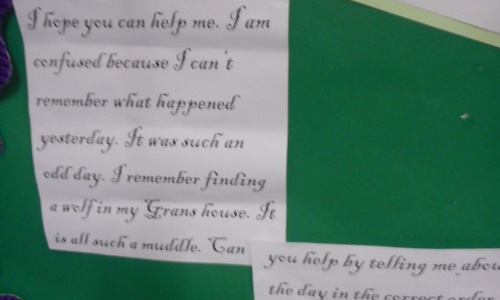 I hope you can help me. I am
confused because I can't
remember what happened
yesterday. It was such an
odd day. I remember finding
a wolf in my Grans house. It
is all such a muddle. Can
you help by telling me abou
the day in the correct order